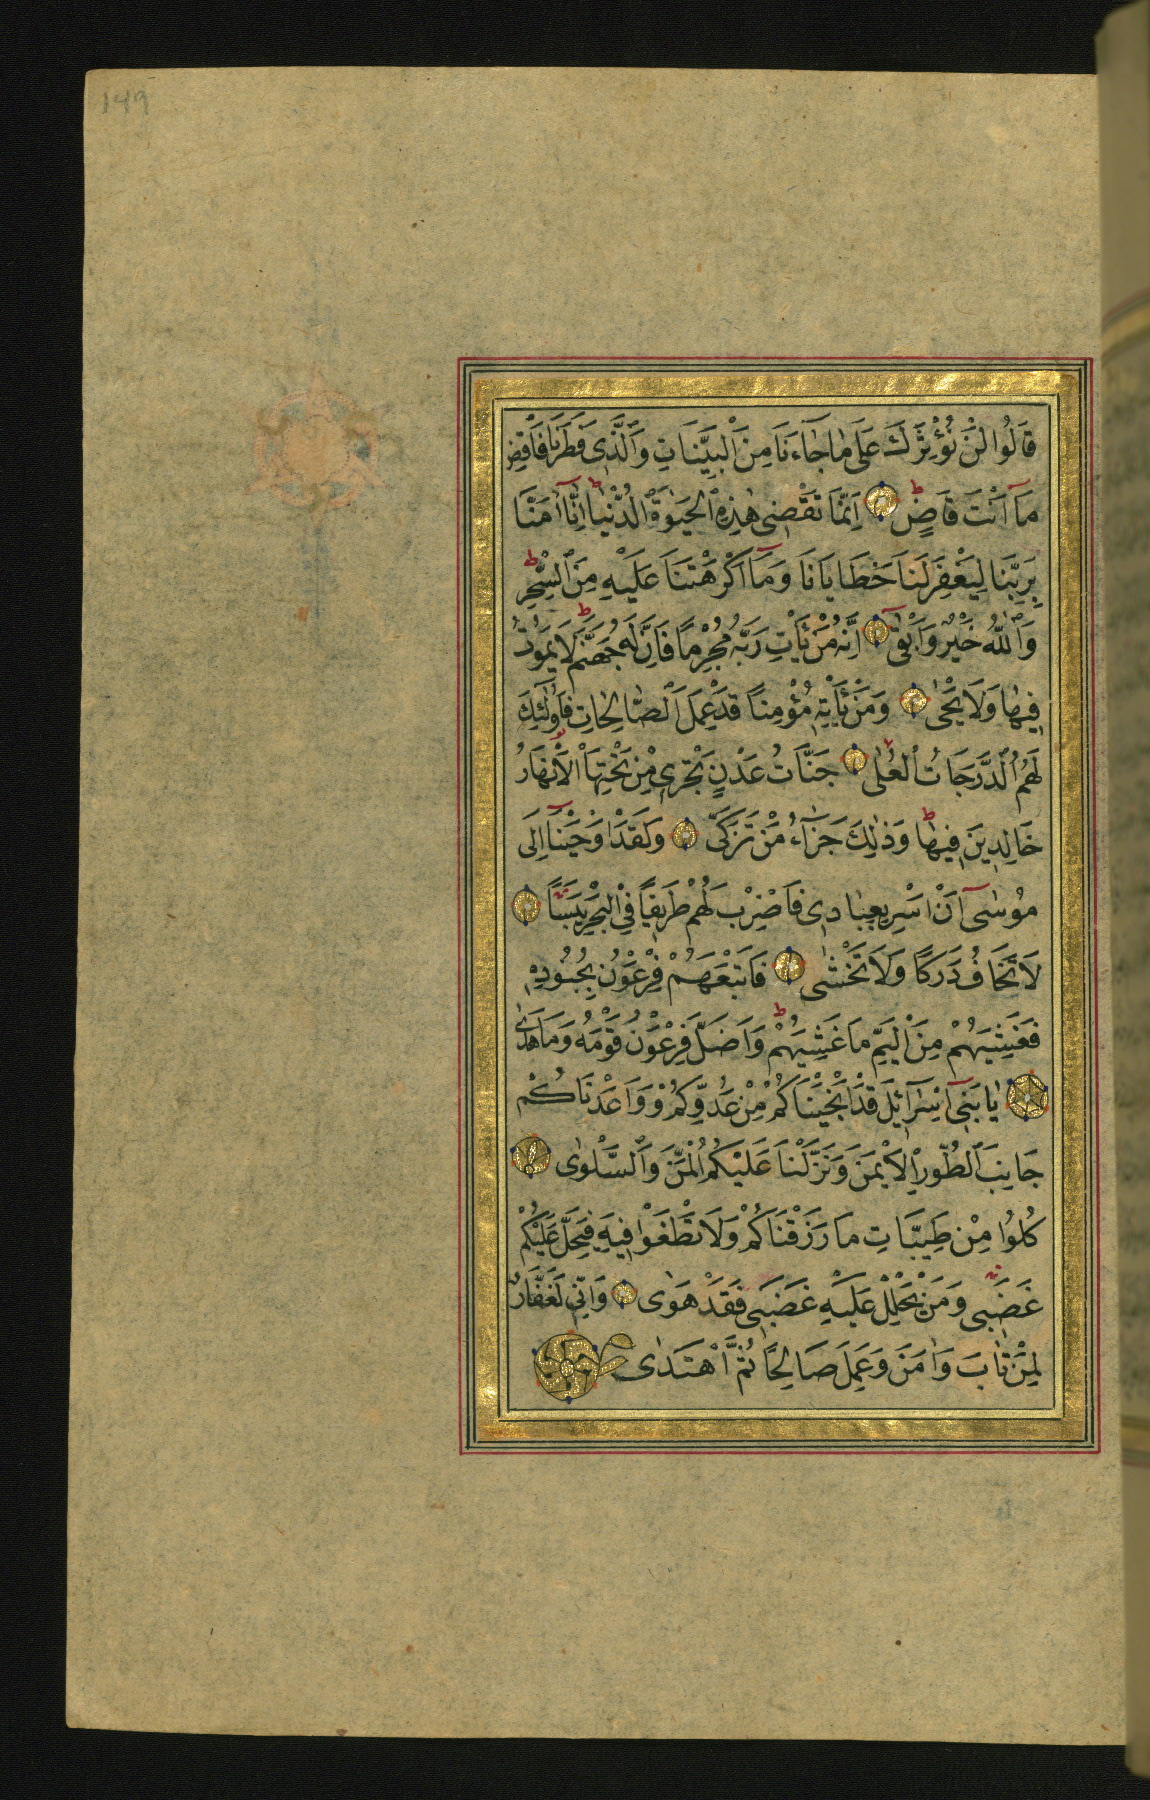 149
قَالُوا لَنْ نُؤْثِرَكَ عَلَى مَا جَاءَنَا مِنَ الْبَيِّنَاتِ وَالَّذِي فَطَرَنَا فَاقْضِ
مَا أَنْتَ قَاضٍ إِنَّمَا تَقْضِي هٰذِهِ الْحَيٰوةَ الدُّنْيَا إِنَّا آمَنَّا
بِرَبِّنَا لِيَغْفِرَ لَنَا خَطَايَانَا وَمَا أَكْرَهْتَنَا عَلَيْهِ مِنَ السِّحْرِ
وَاللّٰهُ خَيْرٌ وَأَبْقٰى إِنَّهُ مَنْ يَأْتِ رَبَّهُ مُجْرِمًا فَإِنَّ لَهُ جَهَنَّمَ لَا يَمُوتُ
فِيهَا وَلَا يَحْيٰى وَمَنْ يَأْتِهِ مُؤْمِنًا قَدْ عَمِلَ الصَّالِحَاتِ فَأُولٰئِكَ
لَهُمُ الدَّرَجَاتُ الْعُلٰى جَنَّاتُ عَدْنٍ تَجْرِي مِنْ تَحْتِهَا الْأَنْهَارُ
خَالِدِينَ فِيهَا وَذٰلِكَ جَزَاءُ مَنْ تَزَكّٰى وَلَقَدْ أَوْحَيْنَا إِلَى
مُوسٰى أَنْ أَسْرِ بِعِبَادِي فَاضْرِبْ لَهُمْ طَرِيقًا فِي الْبَحْرِ يَبَسًا
لَا تَخَافُ دَرَكًا وَلَا تَخْشٰى فَأَتْبَعَهُمْ فِرْعَوْنُ بِجُنُودِهِ
فَغَشِيَهُمْ مِنَ الْيَمِّ مَا غَشِيَهُمْ وَأَضَلَّ فِرْعَوْنُ قَوْمَهُ وَمَا هَدٰى
يَا بَنِي إِسْرَائِلَ قَدْ أَنْجَيْنَاكُمْ مِنْ عَدُوِّكُمْ وَوَاعَدْنَاكُمْ
جَانِبَ الطُّورِ الْأَيْمَنَ وَنَزَّلْنَا عَلَيْكُمُ الْمَنَّ وَالسَّلْوٰى
كُلُوا مِنْ طَيِّبَاتِ مَا رَزَقْنَاكُمْ وَلَا تَطْغَوْا فِيهِ فَيَحِلَّ عَلَيْكُمْ
غَضَبِي وَمَنْ يَحْلِلْ عَلَيْهِ غَضَبِي فَقَدْ هَوٰى وَإِنِّي لَغَفَّارٌ
لِمَنْ تَابَ وَآمَنَ وَعَمِلَ صَالِحًا ثُمَّ اهْتَدٰى